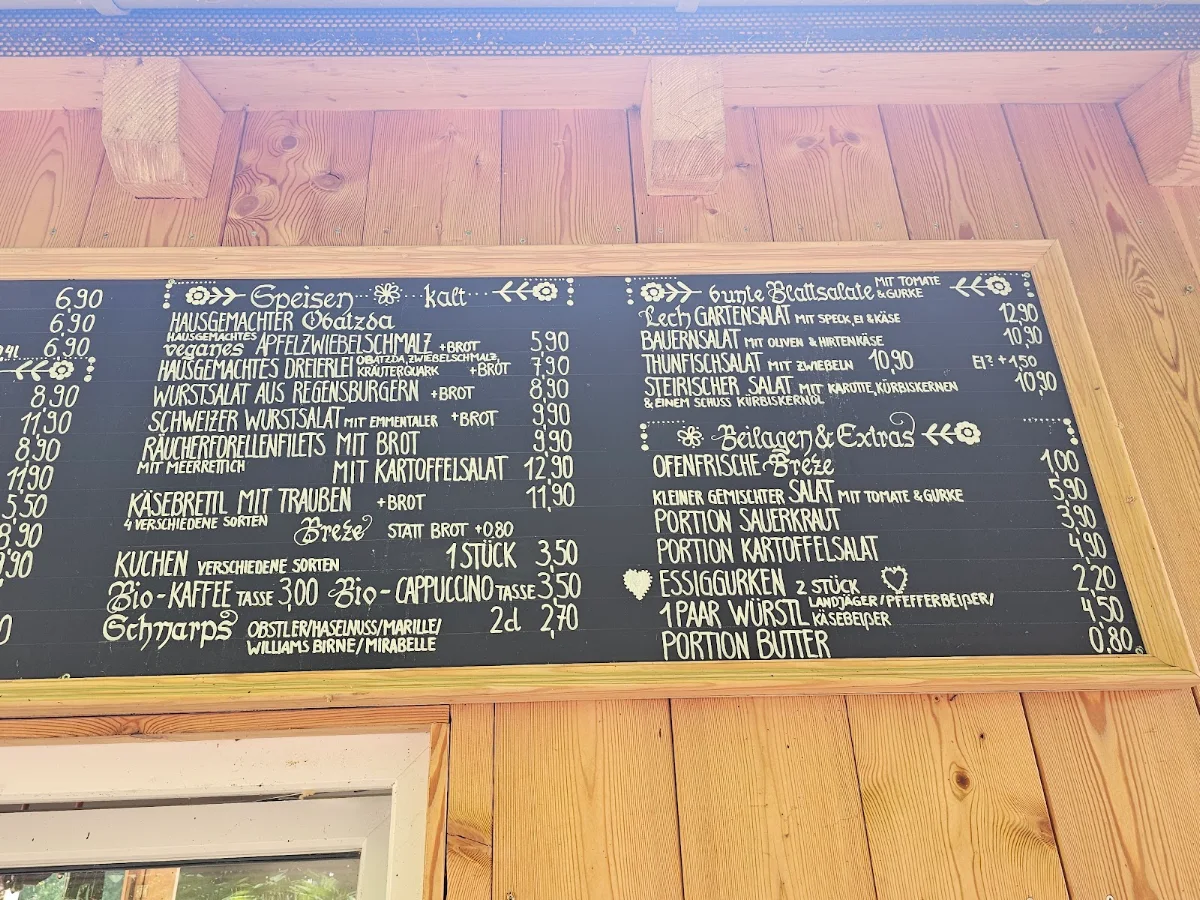 6,90
6,90
6,90
8,90
11,90
8,90
11,90
5,50
8,90
Speisen kalt
HAUSGEMACHTER Obatzda
HAUSGEMACHTES
veganes APFELZWIEBELSCHMALZ +BROT 5,90
HAUSGEMACHTES DREIERLEI OBATZDA, ZWIEBELSCHMALZ, KRÄUTERQUARK +BROT 7,90
WURSTSALAT AUS REGENSBURGERN +BROT 8,90
SCHWEIZER WURSTSALAT MIT EMMENTALER +BROT 9,90
RÄUCHERFORELLENFILETS MIT BROT 9,90
MIT MEERRETTICH MIT KARTOFFELSALAT 12,90
KÄSEBRETTL MIT TRAUBEN +BROT 11,90
4 VERSCHIEDENE SORTEN
Breze STATT BROT +0,80
KUCHEN VERSCHIEDENE SORTEN 1 STÜCK 3,50
Bio-KAFFEE TASSE 3,00 Bio-CAPPUCCINO TASSE 3,50
Schnaps OBSTLER/HASELNUSS/MARILLE/ 2cl 2,70
WILLIAMS BIRNE/MIRABELLE
bunte Blattsalate MIT TOMATE & GURKE
Lech GARTENSALAT MIT SPECK, EI & KÄSE 12,90
BAUERNSALAT MIT OLIVEN & HIRTENKÄSE 10,90
THUNFISCHSALAT MIT ZWIEBELN 10,90 EI? +1,50
STEIRISCHER SALAT MIT KAROTTE, KÜRBISKERNEN 10,90
& EINEM SCHUSS KÜRBISKERNÖL
Beilagen & Extras
OFENFRISCHE Breze 1,00
KLEINER GEMISCHTER SALAT MIT TOMATE & GURKE 5,90
PORTION SAUERKRAUT 3,90
PORTION KARTOFFELSALAT 4,90
ESSIGGURKEN 2 STÜCK 2,20
1 PAAR WÜRSTL LANDJÄGER/PFEFFERBEIßER/ KÄSEBEIßER 4,50
PORTION BUTTER 0,80